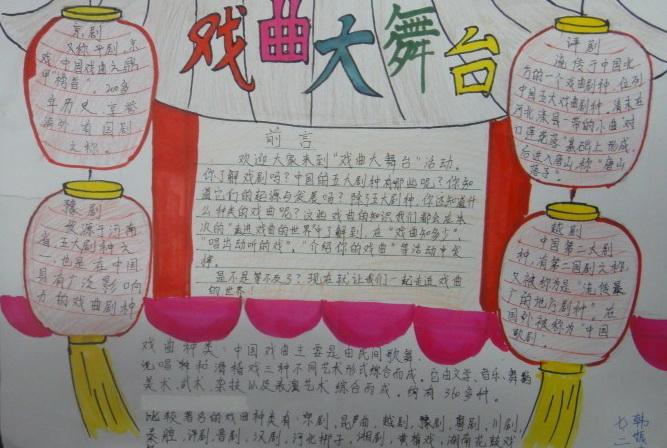 戏曲大舞台
京剧
又称平剧,京
戏,中国戏曲三鼎
甲"榜首"。200多
年历史,享誉
海外,有国剧
之称。
豫剧
发源于河南
省,五大剧种之
一,也是在中国
具有广泛影响
力的戏曲剧种
前言
欢迎大家来到"戏曲大舞台"活动。
你了解戏剧吗?中国的五大剧种有哪些呢?你知
道它们的起源与发展吗?除了五大剧种,你还知道什
么种类的戏曲呢?这些戏曲的知识我们都会在本
次的"走进戏曲的世界"中了解到,在"戏曲知多少"、
"唱出动听的戏"、"介绍你的戏曲"等活动中安
排。
是不是等不及了?现在就让我们一起走进戏曲
的世界
评剧
流传于中国北
方的一个戏曲剧种,位列
中国五大戏曲剧种,清末在
河北滦县一带的小曲"对
口莲花落"基础上形成,
后进入唐山,称"唐山
落子"。
越剧
中国第二大剧
种,有第二国剧之称,
又被称为是"流传最
广的地方剧种"。在
国外被称为"中国
歌剧。
戏曲种类:中国戏曲主要是由民间歌舞、
说唱和滑稽戏三种不同艺术形式综合而成。它由文学、音乐、舞蹈
美术、武术、杂技以及表演艺术综合而成,约有360多种。
比较著名的戏曲种类有:京剧,昆曲,越剧,豫剧,粤剧,川剧,
秦腔,评剧,晋剧,汉剧,河北梆子,湘剧,黄梅戏,湖南花鼓戏
韩